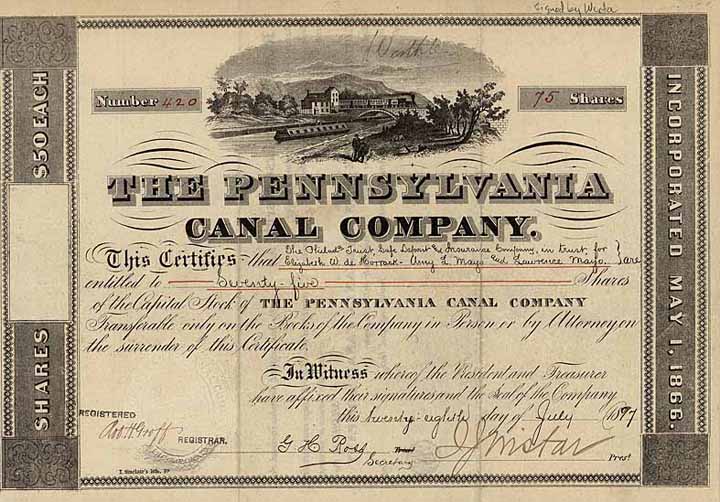 Signed by Wista
Worth
Number 420
75 Shares
$50 EACH
SHARES
INCORPORATED MAY 1, 1866.
THE PENNSYLVANIA
CANAL COMPANY.
This Certifies that The Philada Trust Safe Deposit and Insurance Company, in trust, for
Elizabeth W. de - Amy L. Mayo and Lawrence Mayo. are
entitled to Seventy-five Shares
of the Capital Stock of THE PENNSYLVANIA CANAL COMPANY
Transferable only on the Books of the Company in Person or by Attorney, on
the surrender of this Certificate.
In Witness whereof the President and Treasurer
have affixed their signatures and the Seal of the Company
this twenty-eighth day of July 1897
REGISTERED
REGISTRAR.
G H Ross
Secretary
Prest
T. Sinclair's lith.